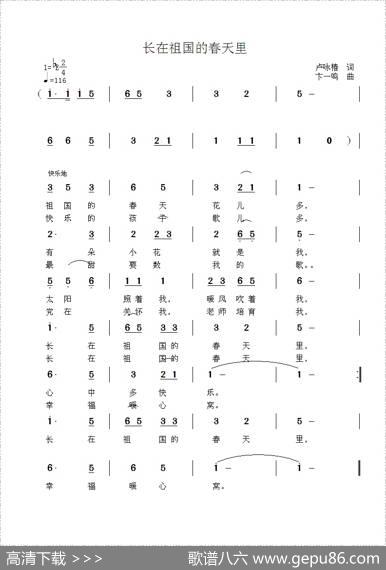 长在祖国的春天里
1=♭E 2/4
♩=116
卢咏椿 词
卞一鸣 曲
( 1· 1 1 5 | 6 5 3 | 3 2 | 5 - |
6 6 5 | 3 2 1 | 1 1 | 1 0 ) |
快乐地
3 5 3 | 6 5 | 3 2 1 | 5 - |
祖国的 春天 花儿 多。
快乐的 孩子 歌儿 多。
3· 2 | 2 3 | 2 6 5 | 5 - |
有朵 小花 就是 我。
最甜 要数 我的 歌。
5 5 6 | 1 1 1 | 2 3 6 5 | 5 - |
太阳 照着我, 暖风吹着 我,
党在 关怀我, 老师培育 我,
1· 5 | 6 5 3 3 | 3 2 | 5 - |
长在 祖国的 春天 里,
长在 祖国的 春天 里,
6· 5 | 3 2 1 | 1 - | 1 - :|
心中 多快 乐。
幸福 暖心 窝。
1· 5 | 6 5 3 3 | 3 2 | 5 - |
长在 祖国的 春天 里,
6· 5 | 5 2 | 1 - | 1 - ‖
幸福 暖心 窝。
高清下载 >>>
歌谱八六 www.gepu86.com